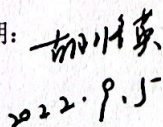 ：胡  英
2022.9.5